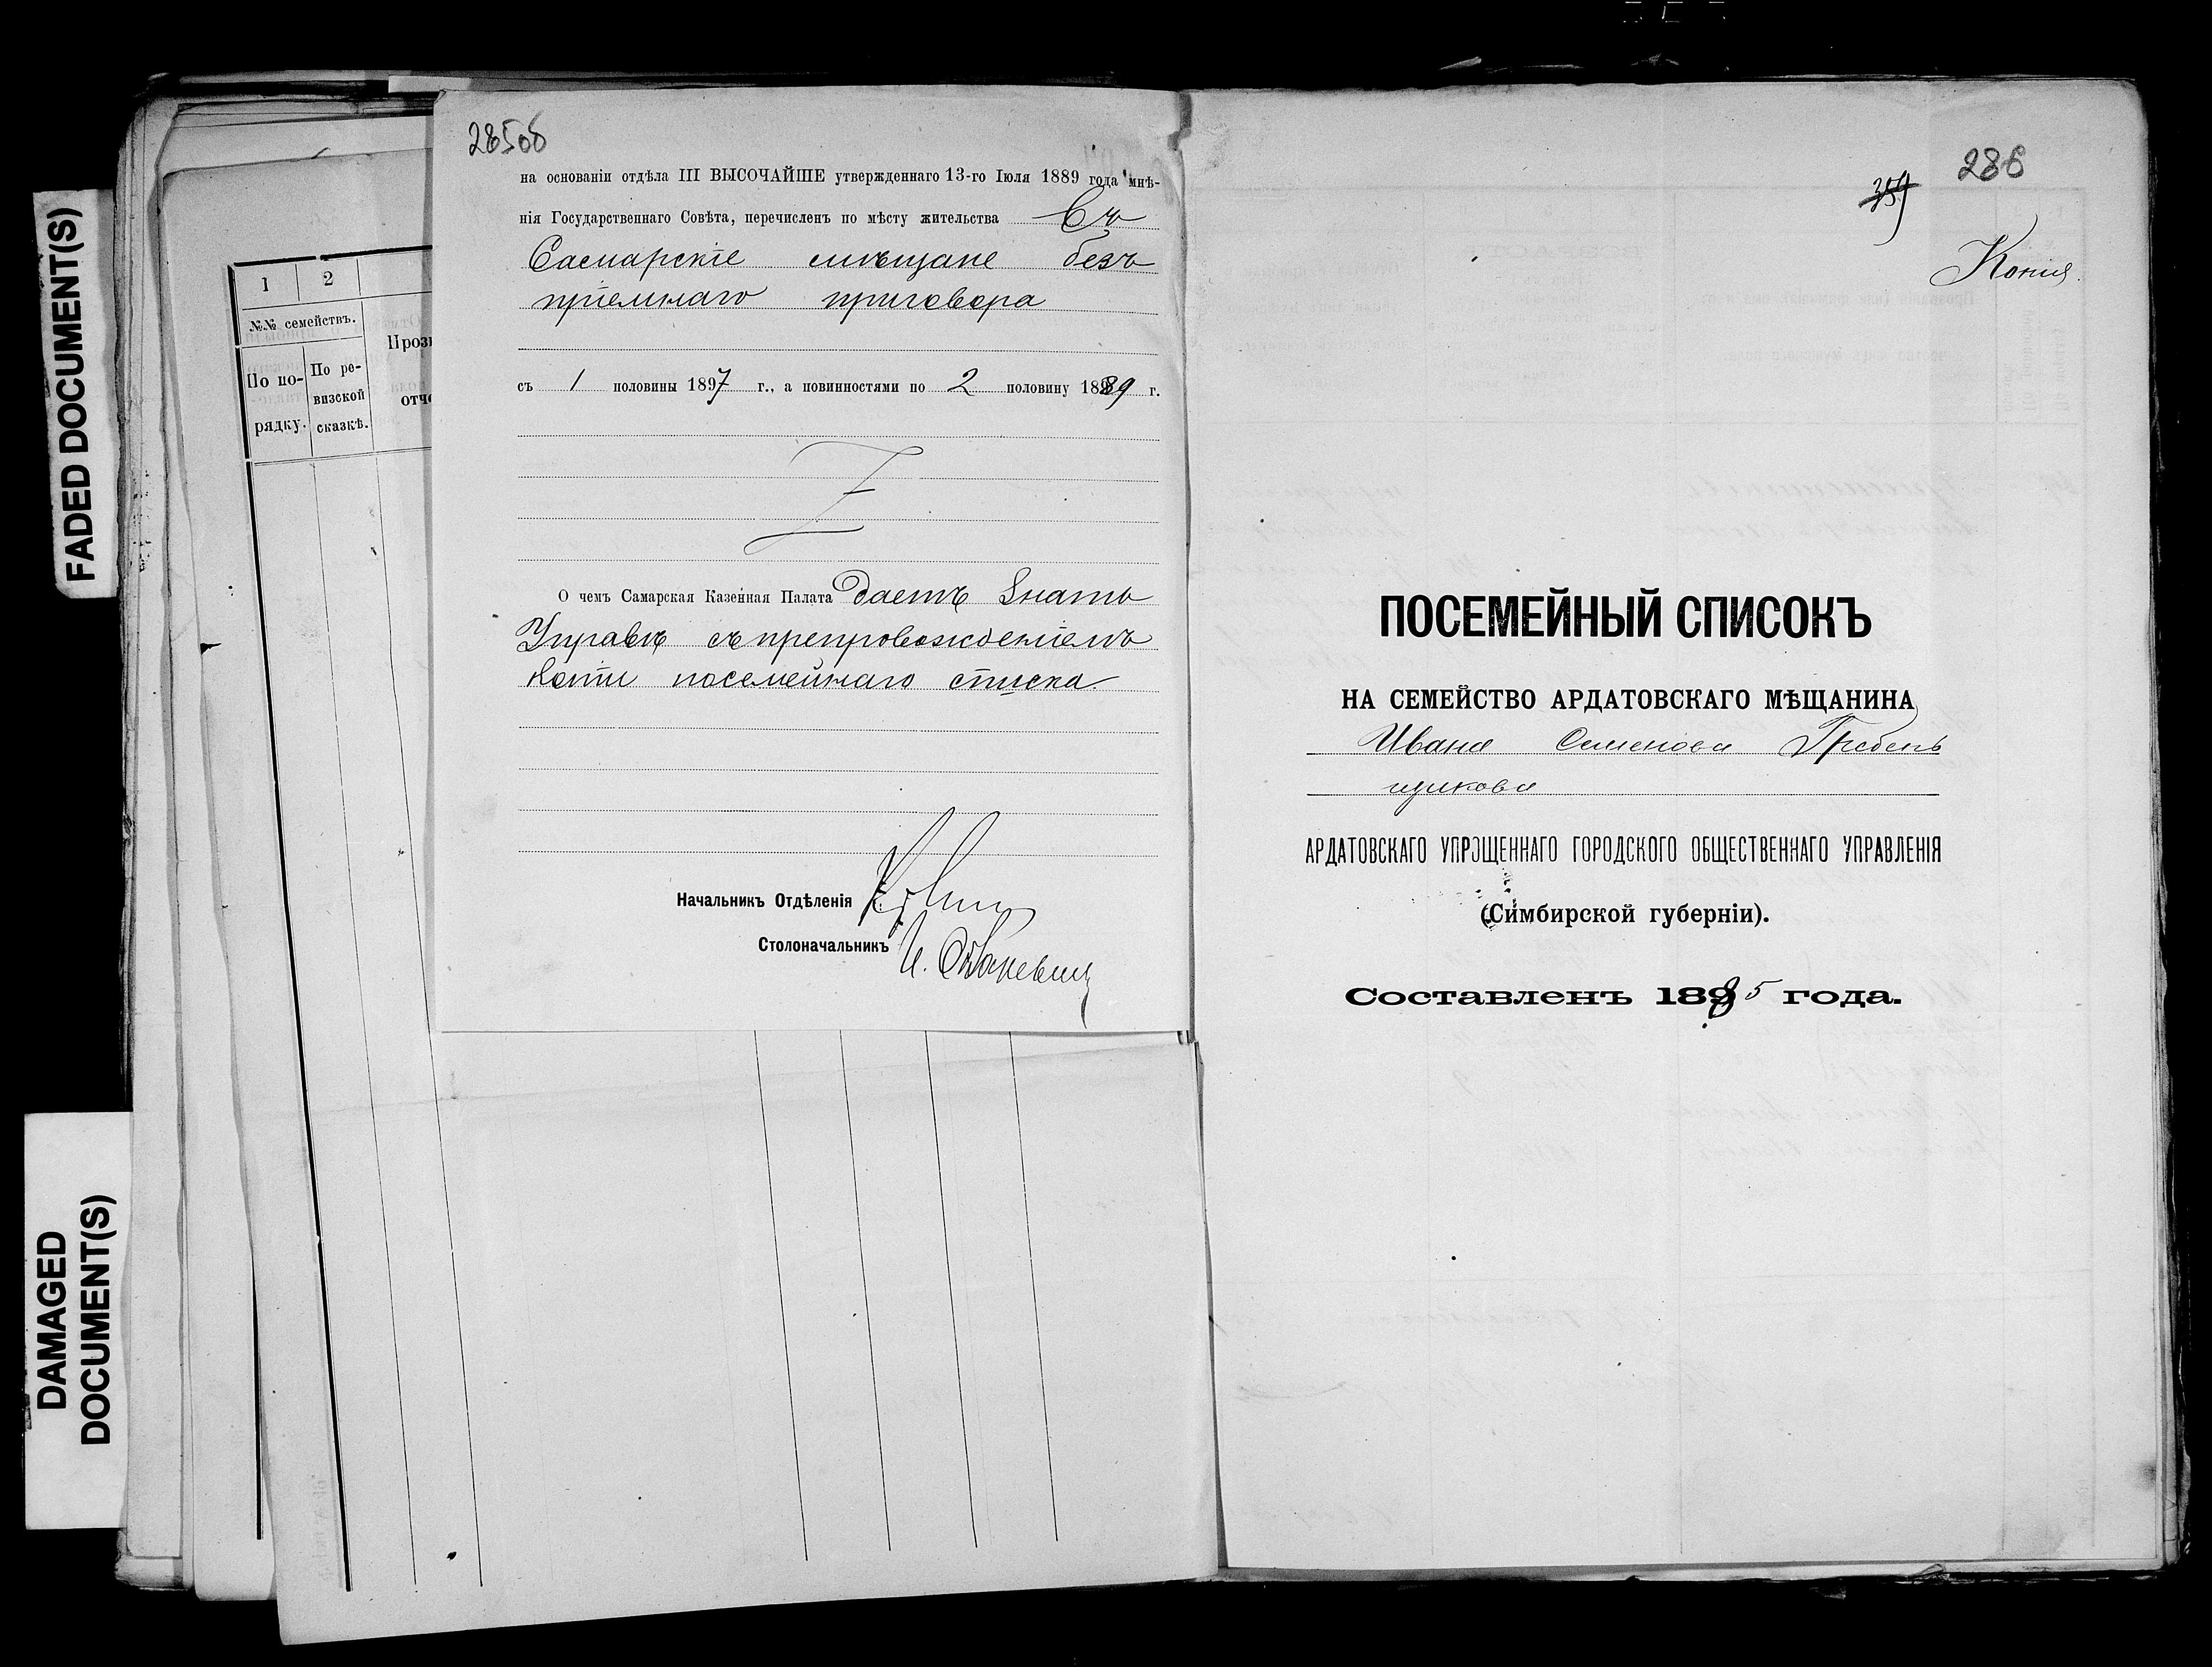 FADED DOCUMENT(S)
DAMAGED
DOCUMENT(S)
1
2
№№ семействъ.
По по-
рядку.
По ре-
визской
сказкѣ.
285об
на основаніи отдѣла III ВЫСОЧАЙШЕ утвержденнаго 13-го Іюля 1889 года мнѣ-
нія Государственнаго Совѣта, перечисленъ по мѣсту жительства въ
Самарскіе мѣщане безъ
пріемнаго приговора
съ 1 половины 1897 г., а повинностями по 2 половину 1889 г.
О чемъ Самарская Казенная Палата даетъ знать
Управѣ съ препровожденіемъ
копіи посемейнаго списка.
Начальникъ Отдѣленія
Столоначальникъ
286
359
Копія.
ПОСЕМЕЙНЫЙ СПИСОКЪ
НА СЕМЕЙСТВО АРДАТОВСКАГО МѢЩАНИНА
Ивана Семенова Гребень
щикова
АРДАТОВСКАГО УПРОЩЕННАГО ГОРОДСКОГО ОБЩЕСТВЕННАГО УПРАВЛЕНІЯ
(Симбирской губерніи).
Составленъ 1885 года.